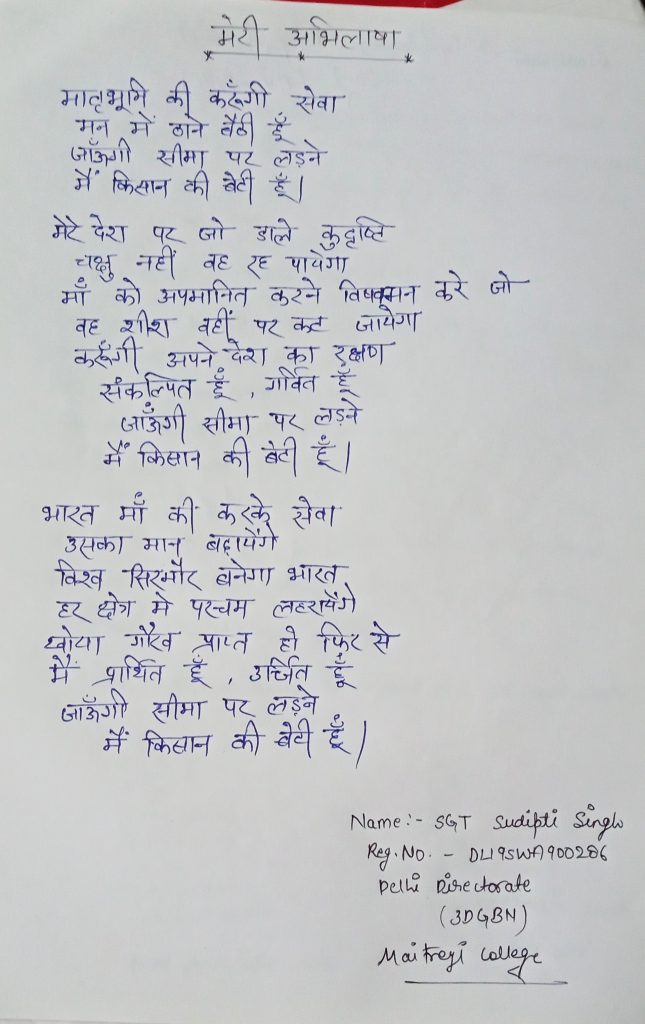 मेरी अभिलाषा
मातृभूमि की करूँगी सेवा
मन में ठाने बैठी हूँ
जाँऊगी सीमा पर लड़ने
मैं किसान की बेटी हूँ।
मेरे देश पर जो डाले कुदृष्टि
चक्षु नहीं वह रह पायेगा
माँ को अपमानित करने विषवमन करे जो
वह शीश वहीं पर कट जायेगा
करूँगी अपने देश का रक्षण
संकल्पित हूँ , गर्वित हूँ
जाँऊगी सीमा पर लड़ने
मैं किसान की बेटी हूँ।
भारत माँ की करके सेवा
उसका मान बढ़ायेंगे
विश्व सिरमौर बनेगा भारत
हर क्षेत्र मे परचम लहरायेंगे
खोया गौरव प्राप्त हो फिर से
मैं प्रार्थित हूँ , उर्जित हूँ
जाँऊगी सीमा पर लड़ने
मैं किसान की बेटी हूँ।
Name:- SGT Sudipti Singh
Reg. No. - DL19SWA900286
Delhi Directorate
(3DGBN)
Maitreyi College